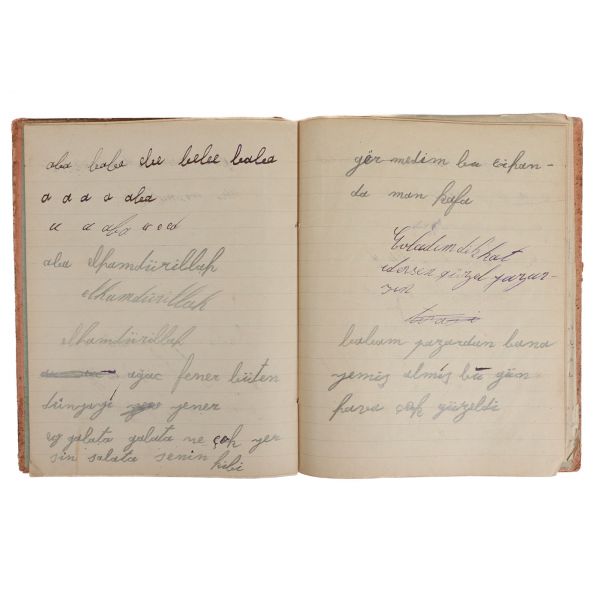 aba baba ebe bebee baba
a a a a aba
a a aba a e a
aba elhamdürillah
elhamdürillah
elhamdürillah
ağac fener büten
dünyayi yener
ey galata galata ne çok yer
sin salata senin
kibi
gör medim bu cihan-
da man kafa
Evladım dikkat
edersen güzel yazar-
sın
babam pazardan bana
yemiş almiş bu gün
hava çok güzeldi